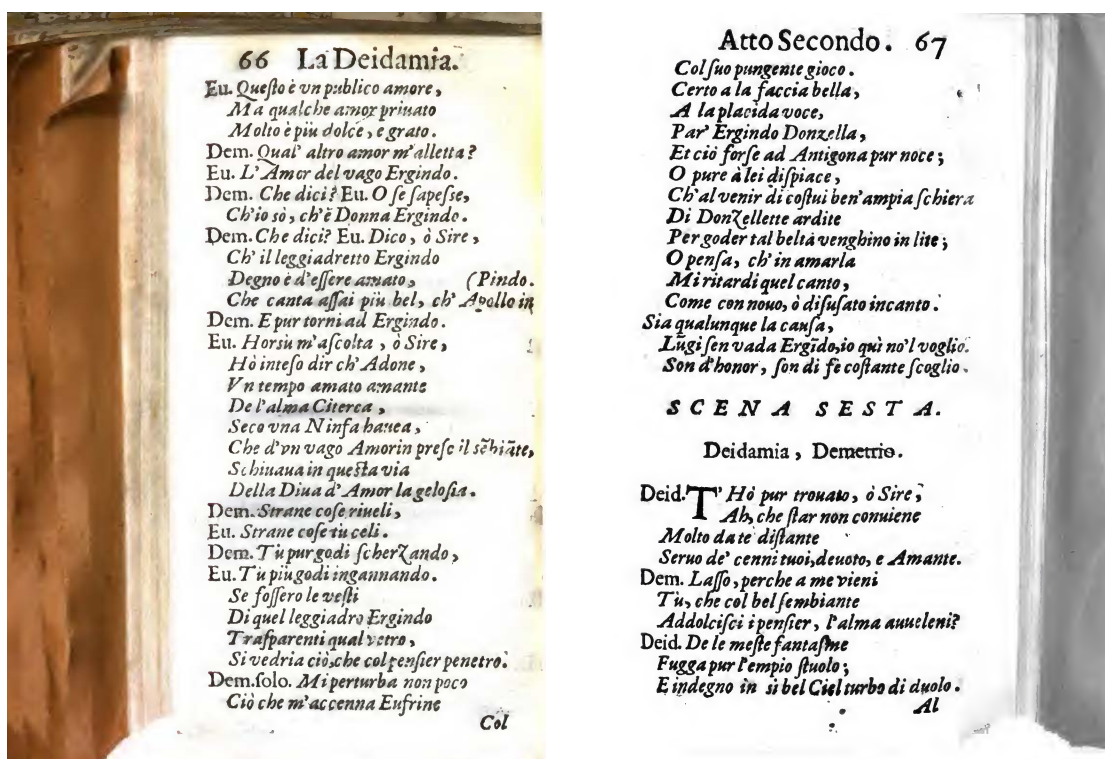 66 La Deidamia.
Eu. Queſto è vn publico amore,
Ma qualche amor priuato
Molto è più dolce, e grato.
Dem. Qual' altro amor m'alletta?
Eu. L'Amor del vago Ergindo.
Dem. Che dici? Eu. O ſe ſapeſse,
Ch'io sò, ch'è Donna Ergindo.
Dem. Che dici? Eu. Dico, ò Sire,
Ch' il leggiadretto Ergindo
Degno è d'eſſere amato, (Pindo.
Che canta aſſai più bel, ch' Apollo in
Dem. E pur torni ad Ergindo.
Eu. Horsù m'aſcolta, ò Sire,
Hò inteſo dir ch' Adone,
Vn tempo amato amante
De l'alma Citerea,
Seco vna Ninfa hauea,
Che d'vn vago Amorin preſe il sẽbiãte,
Schiuaua in queſta via
Della Diua d' Amor la geloſia.
Dem. Strane coſe riueli,
Eu. Strane coſe tù celi.
Dem. Tù pur godi ſcherzando,
Eu. Tù più godi ingannando.
Se foſſero le veſti
Di quel leggiadro Ergindo
Traſparenti qual vetro,
Si vedria ciò, che col penſier penetro.
Dem. ſolo. Mi perturba non poco
Ciò che m'accenna Eufrine
Col
Atto Secondo. 67
Col ſuo pungente gioco.
Certo a la faccia bella,
A la placida voce,
Par' Ergindo Donzella,
Et ciò forſe ad Antigona pur noce;
O pure à lei diſpiace,
Ch'al venir di coſtui ben'ampia ſchiera
Di Donzellette ardite
Per goder tal beltà venghino in lite;
O penſa, ch' in amarla
Mi ritardi quel canto,
Come con nouo, ò diſuſato incanto.
Sia qualunque la cauſa,
Lũgi ſen vada Ergĩdo, io quì no'l voglio.
Son d'honor, ſon di fè coſtante ſcoglio.
SCENA SESTA.
Deidamia, Demetrio.
Deid. T' Hò pur trouato, ò Sire,
Ah, che ſtar non conuiene
Molto da te diſtante
Seruo de' cenni tuoi, deuoto, e Amante.
Dem. Laſſo, perche a me vieni
Tù, che col bel ſembiante
Addolciſci i penſier, l'alma auueleni?
Deid. De le meſte fantaſme
Fugga pur l'empio ſtuolo;
E indegno in sì bel Ciel turbo di duolo.
Al